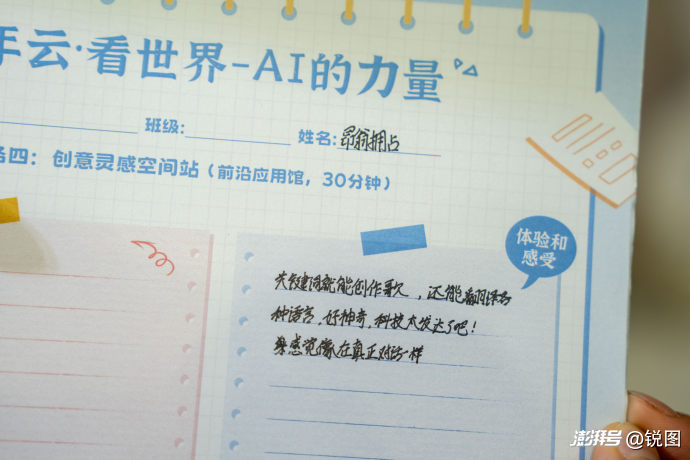 年云·看世界-AI的力量
班级: 姓名:昂翁拥占
务四：创意灵感空间站（前沿应用馆，30分钟）
体验和
感受
关键词就能创作歌，还能翻译多
种语言，好神奇，科技太发达了吧！
感觉像在真正对话一样
澎湃号@锐图